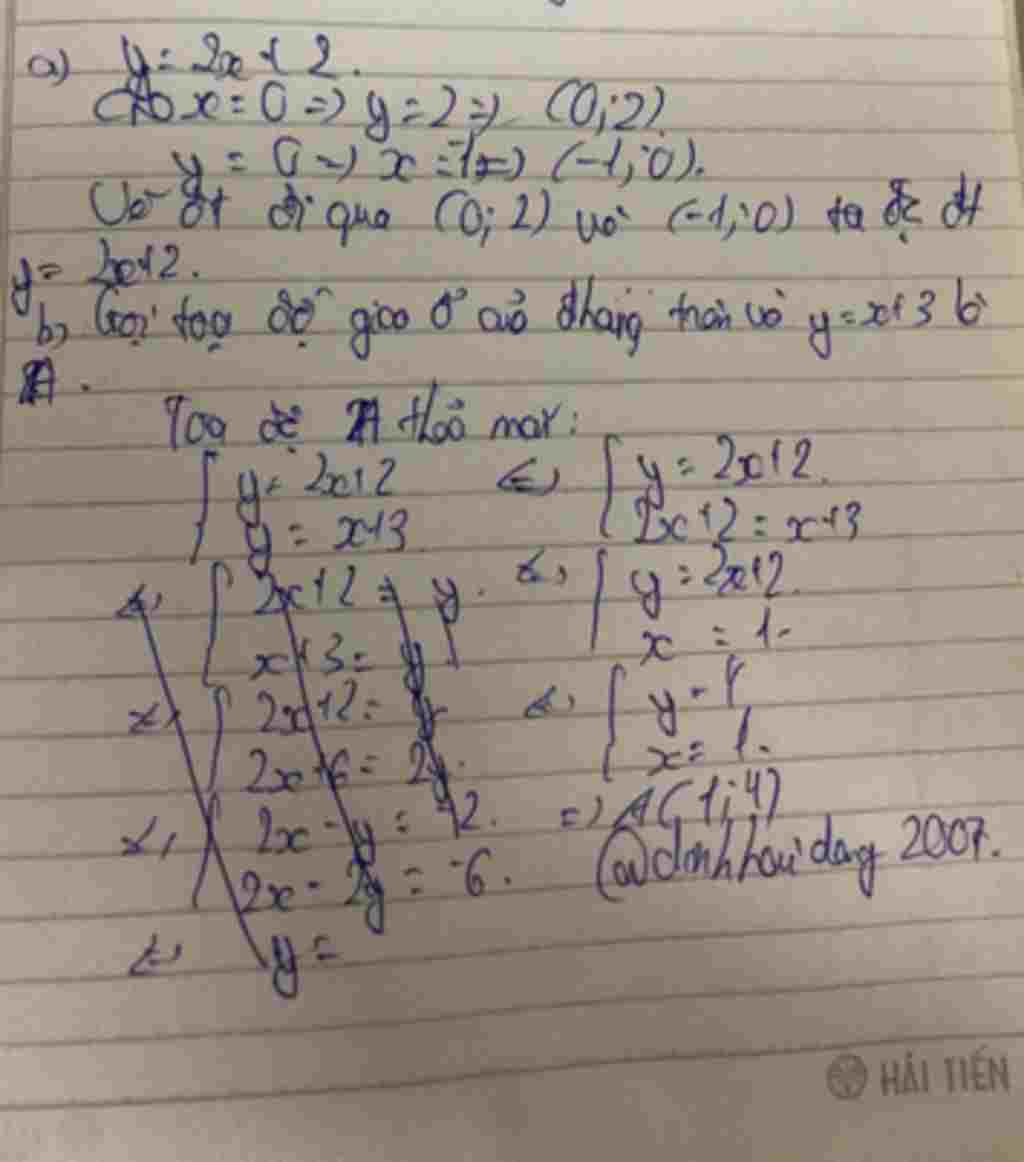 a) y = 2x + 2.
Cho x = 0 => y = 2 => (0; 2)
y = 0 => x = -1 => (-1; 0).
Vẽ đt đi qua (0; 2) và (-1; 0) ta đc đt
y = 2x+2.
b) Gọi toạ độ giao đ' của đthẳng trên và y = x+3 là
A.
Toạ độ A thoả mãn:
{ y = 2x+2 <=> { y = 2x+2.
y = x+3 2x+2 = x+3
<=> { 2x+2 = y. <=> { y = 2x+2.
x+3 = y x = 1.
<=> { 2x+2 = y <=> { y = 4
2x+6 = 2y. x = 1.
<=> { 2x - y = -2. => A(1; 4)
2x - 2y = -6. @dinhhaidang2007.
<=> y =
HẢI TIẾN